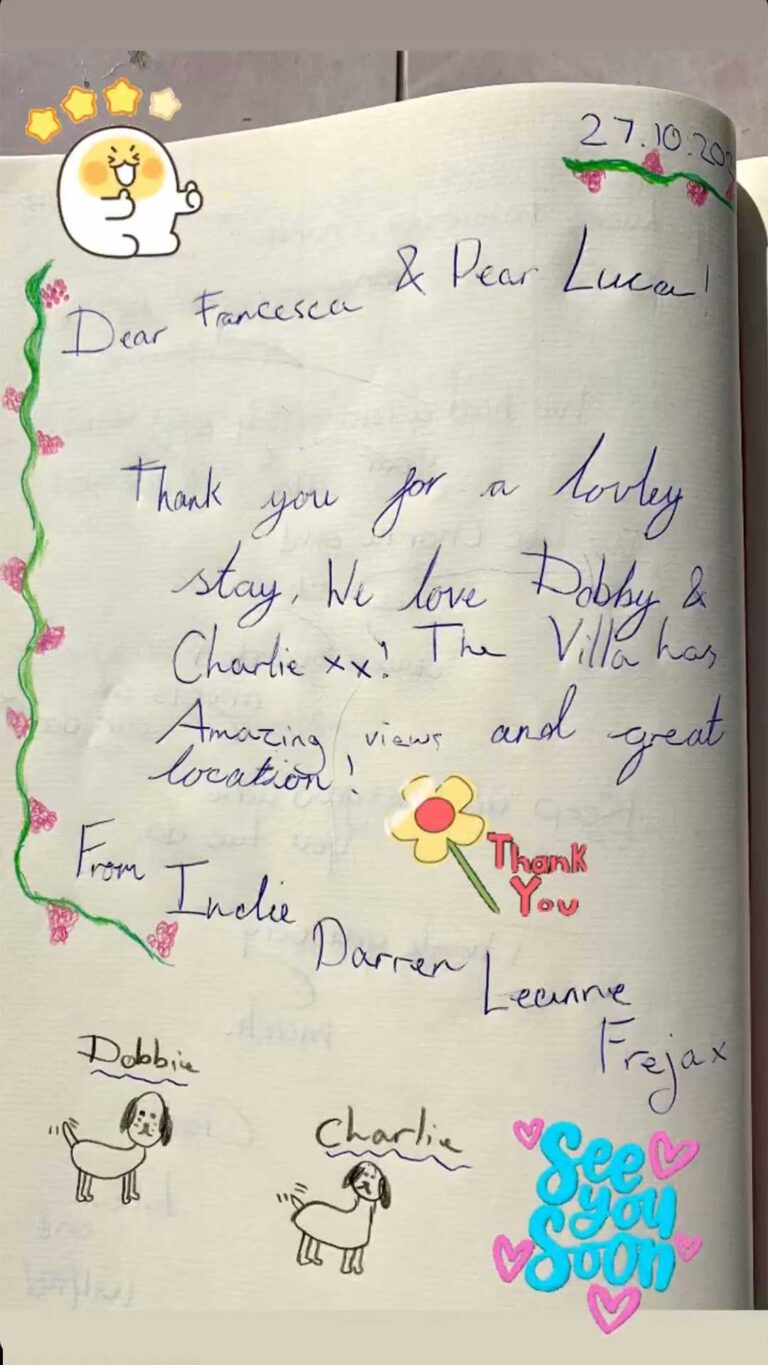 27.10.20
Dear Francesca & Dear Luca!
Thank you for a lovley
stay. We love Dobby &
Charlie xx! The Villa has
Amazing views and great
location!
From Indie
Darren Leanne
Freja x
Thank
You
Dobbie
Charlie
See
you
Soon